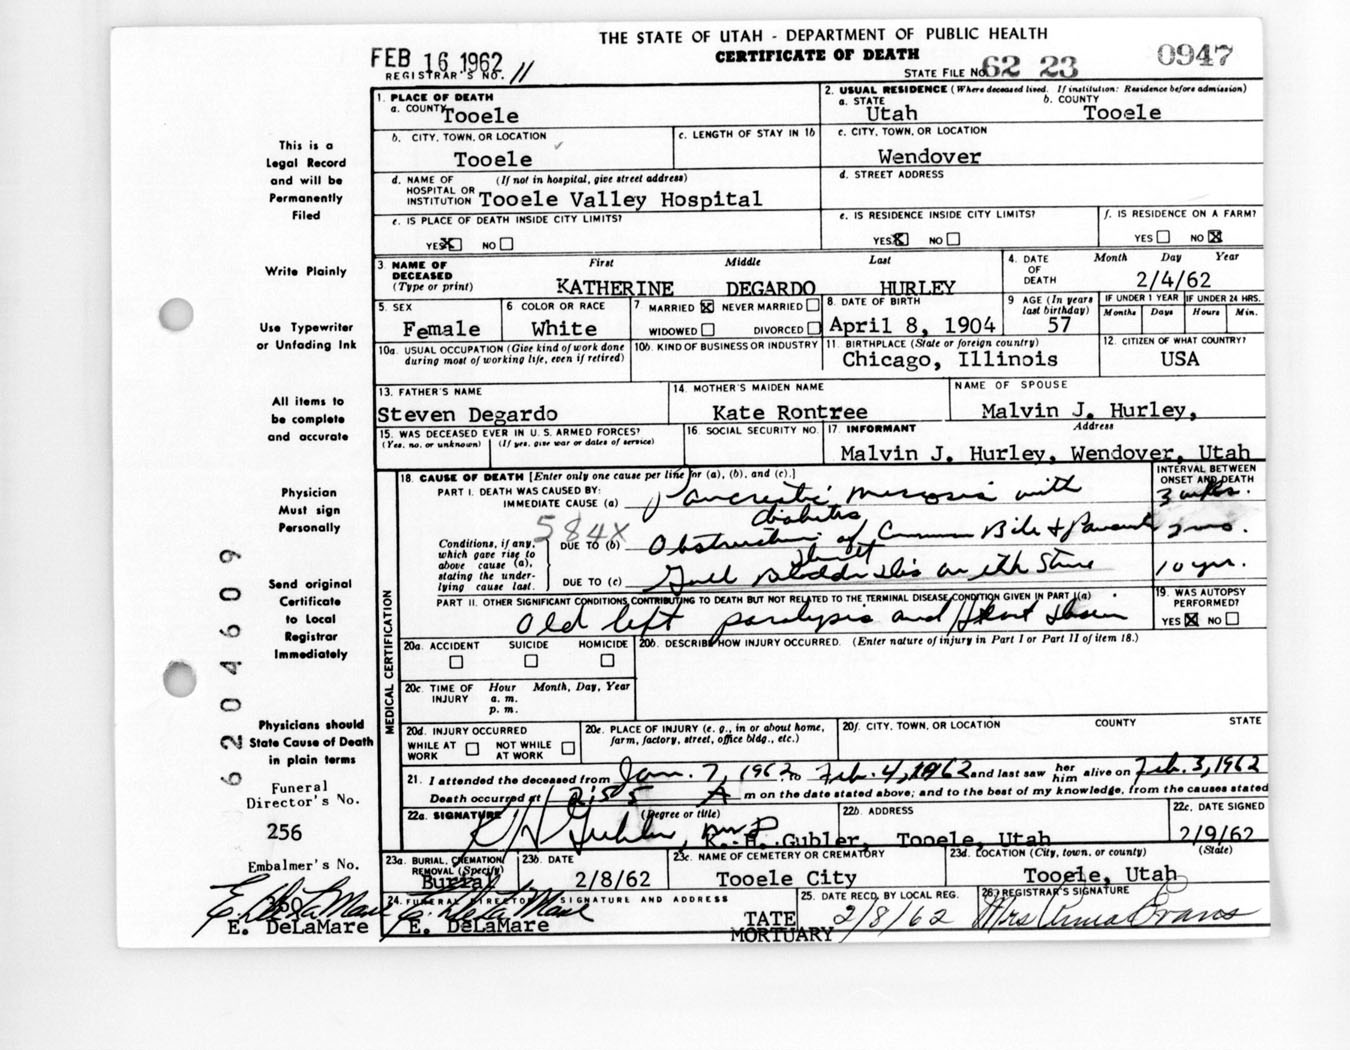 THE STATE OF UTAH - DEPARTMENT OF PUBLIC HEALTH
CERTIFICATE OF DEATH
FEB 16 1962
REGISTRAR'S NO. 11
STATE FILE NO. 62 23 0947
This is a
Legal Record
and will be
Permanently
Filed
Write Plainly
Use Typewriter
or Unfading Ink
All items to
be complete
and accurate
Physician
Must sign
Personally
Send original
Certificate
to Local
Registrar
Immediately
Physicians should
State Cause of Death
in plain terms
Funeral
Director's No.
256
Embalmer's No.
E. DeLaMare
E. DeLaMare
62 04609
1. PLACE OF DEATH
a. COUNTY Tooele
2. USUAL RESIDENCE (Where deceased lived. If institution: Residence before admission)
a. STATE Utah b. COUNTY Tooele
b. CITY, TOWN, OR LOCATION Tooele
c. LENGTH OF STAY IN 1b
c. CITY, TOWN, OR LOCATION Wendover
d. NAME OF HOSPITAL OR INSTITUTION (If not in hospital, give street address) Tooele Valley Hospital
d. STREET ADDRESS
e. IS PLACE OF DEATH INSIDE CITY LIMITS?
YES X NO
e. IS RESIDENCE INSIDE CITY LIMITS?
YES X NO
f. IS RESIDENCE ON A FARM?
YES NO X
3. NAME OF DECEASED (Type or print) First Middle Last
KATHERINE DEGARDO HURLEY
4. DATE OF DEATH Month Day Year
2/4/62
5. SEX Female
6 COLOR OR RACE White
7 MARRIED X NEVER MARRIED
WIDOWED DIVORCED
8. DATE OF BIRTH April 8, 1904
9 AGE (In years last birthday) 57
IF UNDER 1 YEAR Months Days
IF UNDER 24 HRS. Hours Min.
10a. USUAL OCCUPATION (Give kind of work done during most of working life, even if retired)
10b. KIND OF BUSINESS OR INDUSTRY
11. BIRTHPLACE (State or foreign country) Chicago, Illinois
12. CITIZEN OF WHAT COUNTRY? USA
13. FATHER'S NAME Steven Degardo
14. MOTHER'S MAIDEN NAME Kate Rontree
NAME OF SPOUSE Malvin J. Hurley,
15. WAS DECEASED EVER IN U. S. ARMED FORCES?
(Yes, no, or unknown) (If yes, give war or dates of service)
16. SOCIAL SECURITY NO.
17. INFORMANT Address
Malvin J. Hurley, Wendover, Utah
MEDICAL CERTIFICATION
18. CAUSE OF DEATH [Enter only one cause per line for (a), (b), and (c).]
INTERVAL BETWEEN ONSET AND DEATH
PART I. DEATH WAS CAUSED BY:
IMMEDIATE CAUSE (a) Pancreatic necrosis with diabetes 3 wks.
584X
Conditions, if any, which gave rise to above cause (a), stating the underlying cause last.
DUE TO (b) Obstruction of Common Bile & Pancreatic duct 3 wks.
DUE TO (c) Gall Bladder with Stone 10 yr.
PART II. OTHER SIGNIFICANT CONDITIONS CONTRIBUTING TO DEATH BUT NOT RELATED TO THE TERMINAL DISEASE CONDITION GIVEN IN PART I(a)
Old left paralysis and Heart
19. WAS AUTOPSY PERFORMED?
YES X NO
20a. ACCIDENT SUICIDE HOMICIDE
20b. DESCRIBE HOW INJURY OCCURRED. (Enter nature of injury in Part I or Part II of item 18.)
20c. TIME OF INJURY Hour Month, Day, Year
a. m.
p. m.
20d. INJURY OCCURRED
WHILE AT WORK NOT WHILE AT WORK
20e. PLACE OF INJURY (e. g., in or about home, farm, factory, street, office bldg., etc.)
20f. CITY, TOWN, OR LOCATION COUNTY STATE
21. I attended the deceased from Jan. 7, 1962 to Feb. 4, 1962 and last saw her him alive on Feb. 3, 1962
Death occurred at 2:55 A m on the date stated above; and to the best of my knowledge, from the causes stated
22a. SIGNATURE (Degree or title)
R H Gubler, MD
K. H. Gubler, Tooele, Utah
22b. ADDRESS
22c. DATE SIGNED 2/9/62
23a. BURIAL, CREMATION, REMOVAL (Specify) Burial
23b. DATE 2/8/62
23c. NAME OF CEMETERY OR CREMATORY Tooele City
23d. LOCATION (City, town, or county) (State)
Tooele, Utah
24. FUNERAL DIRECTOR'S SIGNATURE AND ADDRESS
E. DeLaMare
E. DeLaMare TATE MORTUARY
25. DATE RECD. BY LOCAL REG. 2/8/62
26. REGISTRAR'S SIGNATURE
Mrs Anna Evans